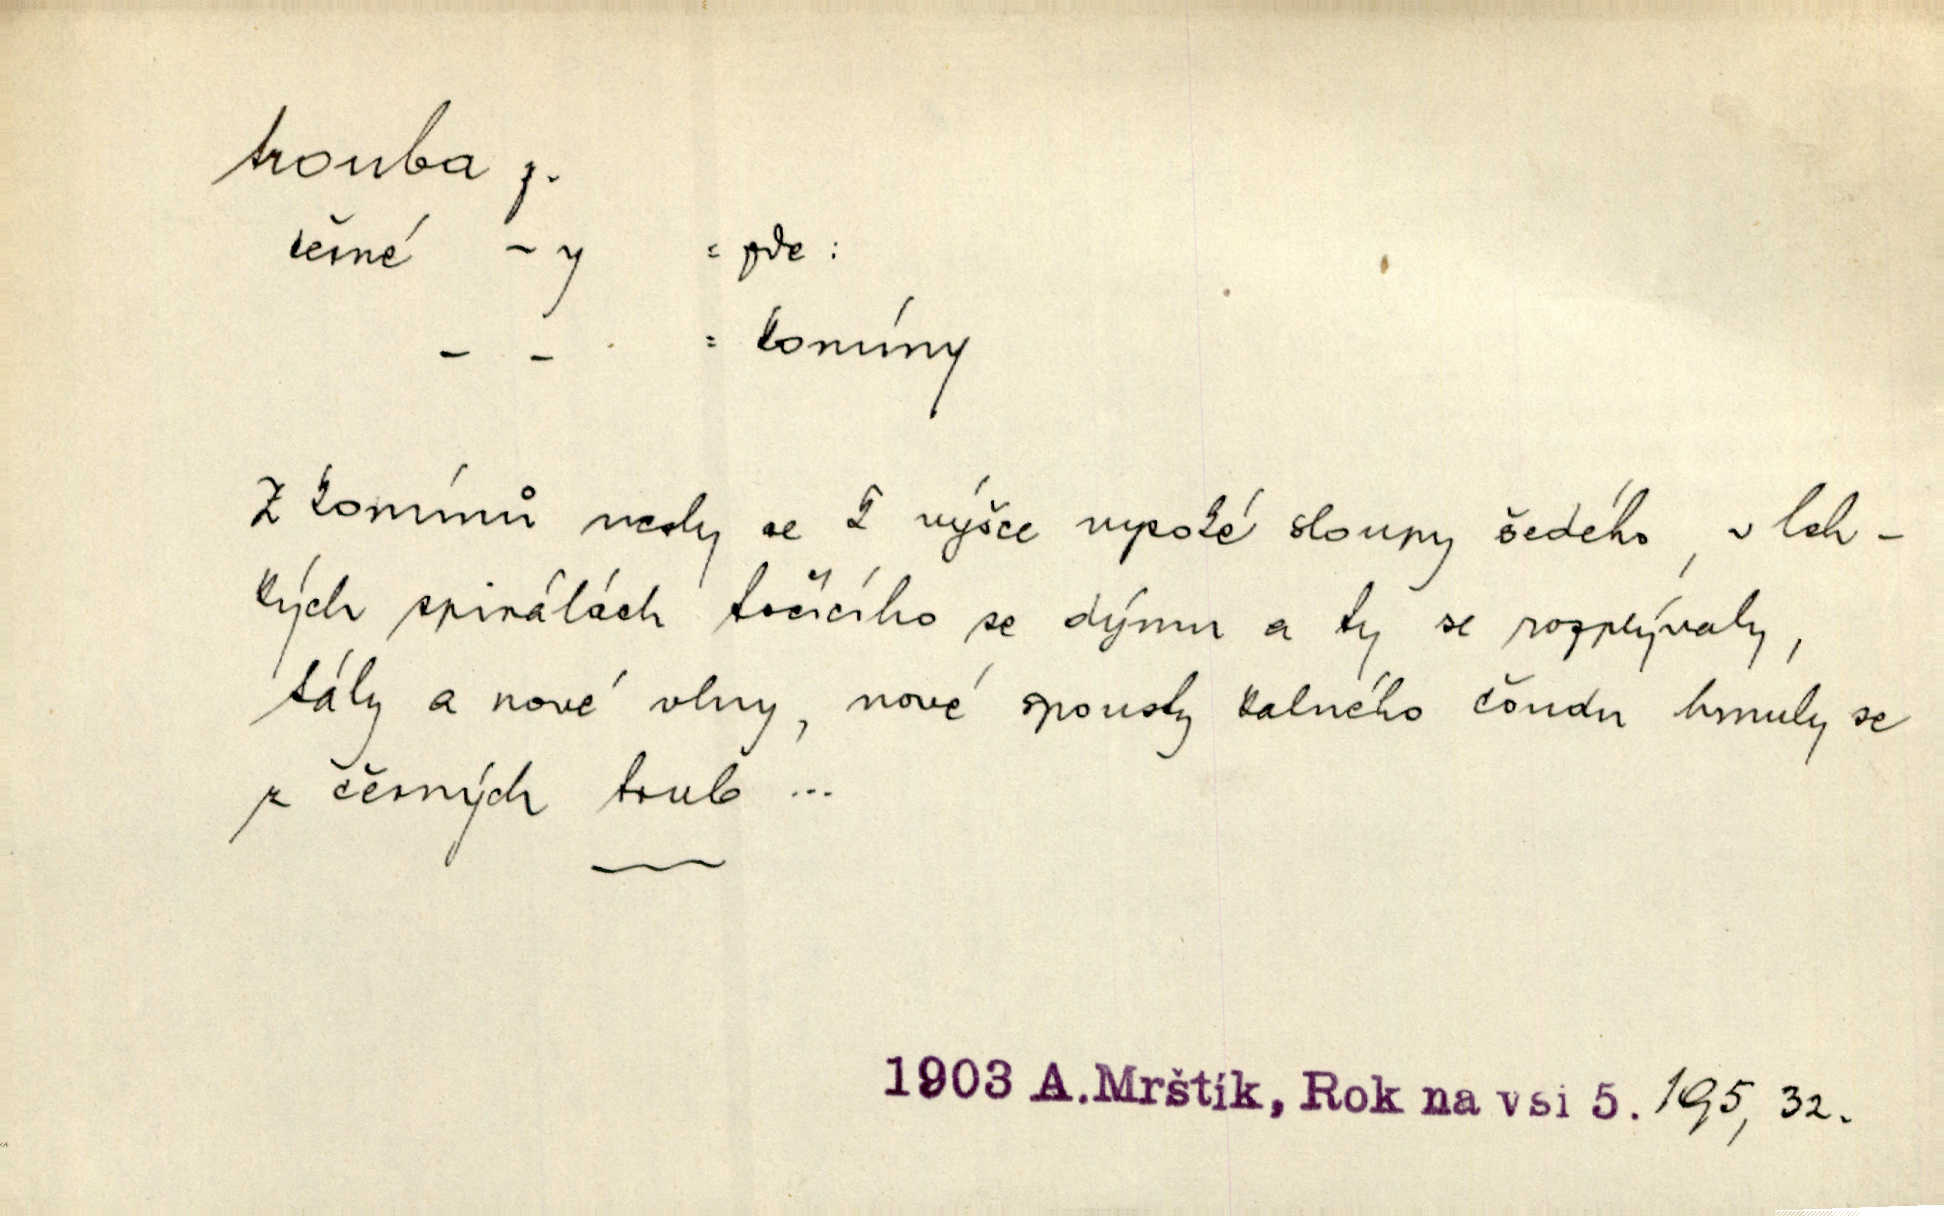 trouba f.
černé - y = zde :
- - = komíny
Z komínů nesly se k výšce vysoké sloupy šedého, v leh-
kých spirálách točícího se dýmu a ty se rozplývaly,
tály a nové vlny, nové spousty kalného čoudu hrnuly se
z černých trub ...
1903 A.Mrštík, Rok na vsi 5. 195, 32.